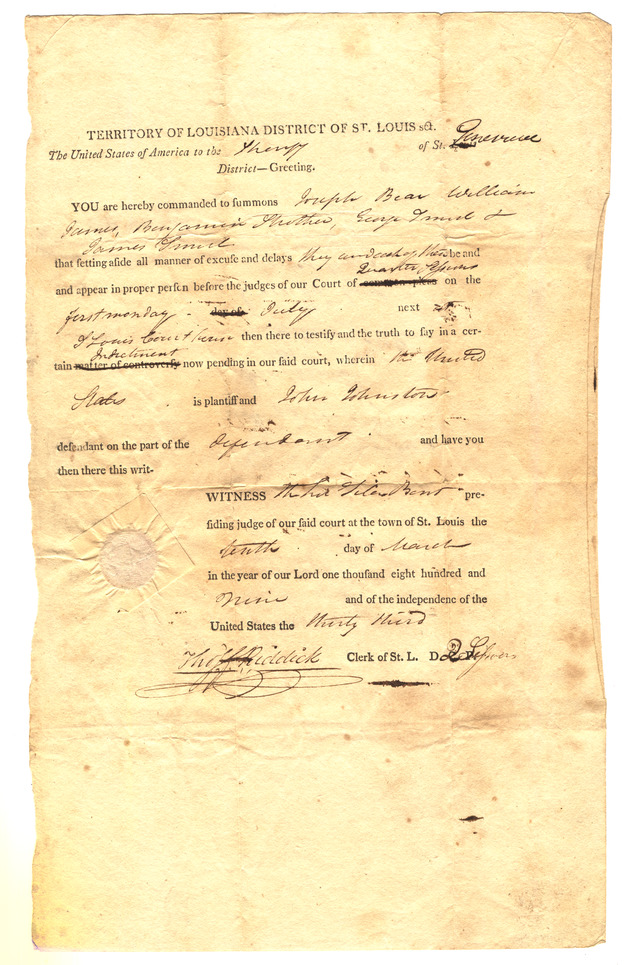 TERRITORY OF LOUISIANA DISTRICT OF ST. LOUIS sct.
The United States of America to the Sheriff of St. Louis Genevieve
District—Greeting.
YOU are hereby commanded to summons Joseph Bear William
James, Benjamin Strother, George &
James
that setting aside all manner of excuse and delays they and each of them be and
and appear in proper person before the judges of our Court of common pleas Quarter Sessions on the
first monday day of July next at
St Louis Court house then there to testify and the truth to say in a cer-
tain matter of controversy Indictment now pending in our said court, wherein the United
States is plantiff and John Johnston
defendant on the part of the defendant and have you
then there this writ-
WITNESS the hon Silas Bent pre-
siding judge of our said court at the town of St. Louis the
tenth day of March
in the year of our Lord one thousand eight hundred and
Nine and of the independenc of the
United States the thirty third
Tho F Riddick Clerk of St. L. D. Q Sessions